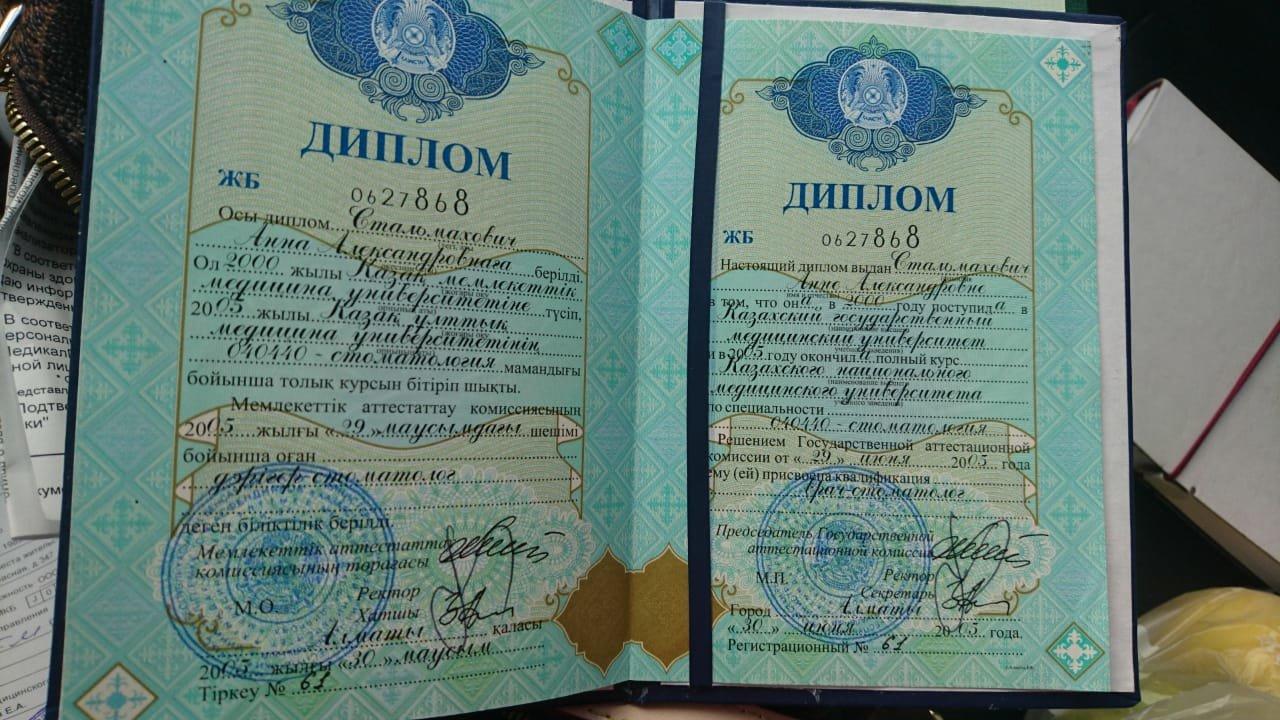 ДИПЛОМ
ЖБ
0627868
Осы диплом Стальмахович
Анна Александровнаға берілді.
Ол 2000 жылы Қазақ мемлекеттік
медицина университетіне түсіп,
2005 жылы Қазақ ұлттық
медицина университетінің
040440 - стоматология мамандығы
бойынша толық курсын бітіріп шықты.
Мемлекеттік аттестаттау комиссиясының
2005 жылғы «29» маусымдағы шешімі
бойынша оған
дәрігер стоматолог
деген біліктілік берілді.
Мемлекеттік аттестаттау
комиссиясының төрағасы
Ректор
М.О. Хатшы
Алматы қаласы
2005 жылғы «30» маусым
Тіркеу № 61
ДИПЛОМ
ЖБ 0627868
Настоящий диплом выдан Стальмахович
Анне Александровне
в том, что она в 2000 году поступила в
Казахский государственный
медицинский университет
и в 2005 году окончил полный курс
Казахского национального
медицинского университета
по специальности
040440 - стоматология
Решением Государственной аттестационной
комиссии от «29» июня 2005 года
ему (ей) присвоена квалификация
врач-стоматолог
Председатель Государственной
аттестационной комиссии
М.П. Ректор
Секретарь
Город Алматы
«30» июня 2005 года.
Регистрационный № 61